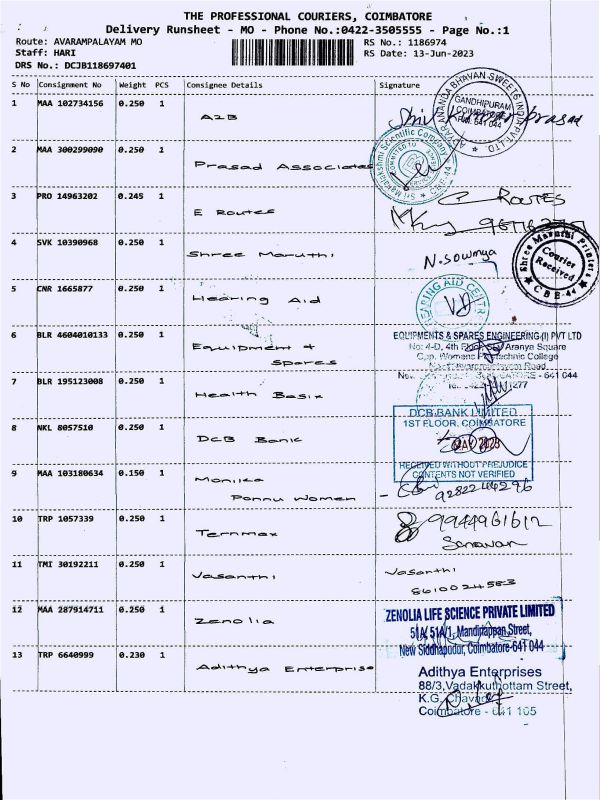 THE PROFESSIONAL COURIERS, COIMBATORE
Delivery Runsheet - MO - Phone No.:0422-3505555 - Page No.:1
Route: AVARAMPALAYAM MO
RS No.: 1186974
Staff: HARI
RS Date: 13-Jun-2023
DRS No.: DCJB118697401
S No Consignment No Weight PCS Consignee Details Signature
1 MAA 102734156 0.250 1 A2B
ANANDA BHAVAN SWEETS INDIA PVT. LTD.
GANDHIPURAM
COIMBATORE
641 044
2 MAA 300299090 0.250 1 Prasad Associates
Scientific Company
CBE-44
3 PRO 14963202 0.245 1 E Routes
ROUTES
4 SVK 10390968 0.250 1 Shree Maruthi
N.Sowmya
Shree Maruthi Printers
Courier
Received
CBE-44
5 CNR 1665877 0.250 1 Hearing Aid
HEARING AID CENTRE
6 BLR 4604010133 0.250 1 Equipment + Spares
EQUIPMENTS & SPARES ENGINEERING (I) PVT LTD
No: 4-D, 4th Floor, Aranya Square
Opp. Womens Polytechnic College
641 044
7 BLR 195123008 0.250 1 Health Basix
8 NKL 8057510 0.250 1 DCB Bank
DCB BANK LIMITED
1ST FLOOR, COIMBATORE
RECEIVED WITHOUT PREJUDICE
CONTENTS NOT VERIFIED
9 MAA 103180634 0.150 1 Monika Ponnu Women
10 TRP 1057339 0.250 1 Ternmax
Saravan
11 TMI 30192211 0.250 1 Vasanthi
Vasanthi
8610024583
12 MAA 287914711 0.250 1 Zenolia
ZENOLIA LIFE SCIENCE PRIVATE LIMITED
51A/1, Street,
New Siddhapudur, Coimbatore-641 044
13 TRP 6640999 0.230 1 Adithya Enterprise
Adithya Enterprises
88/3,Vadakkuthottam Street,
K.G. Chavadi
Coimbatore - 641 105